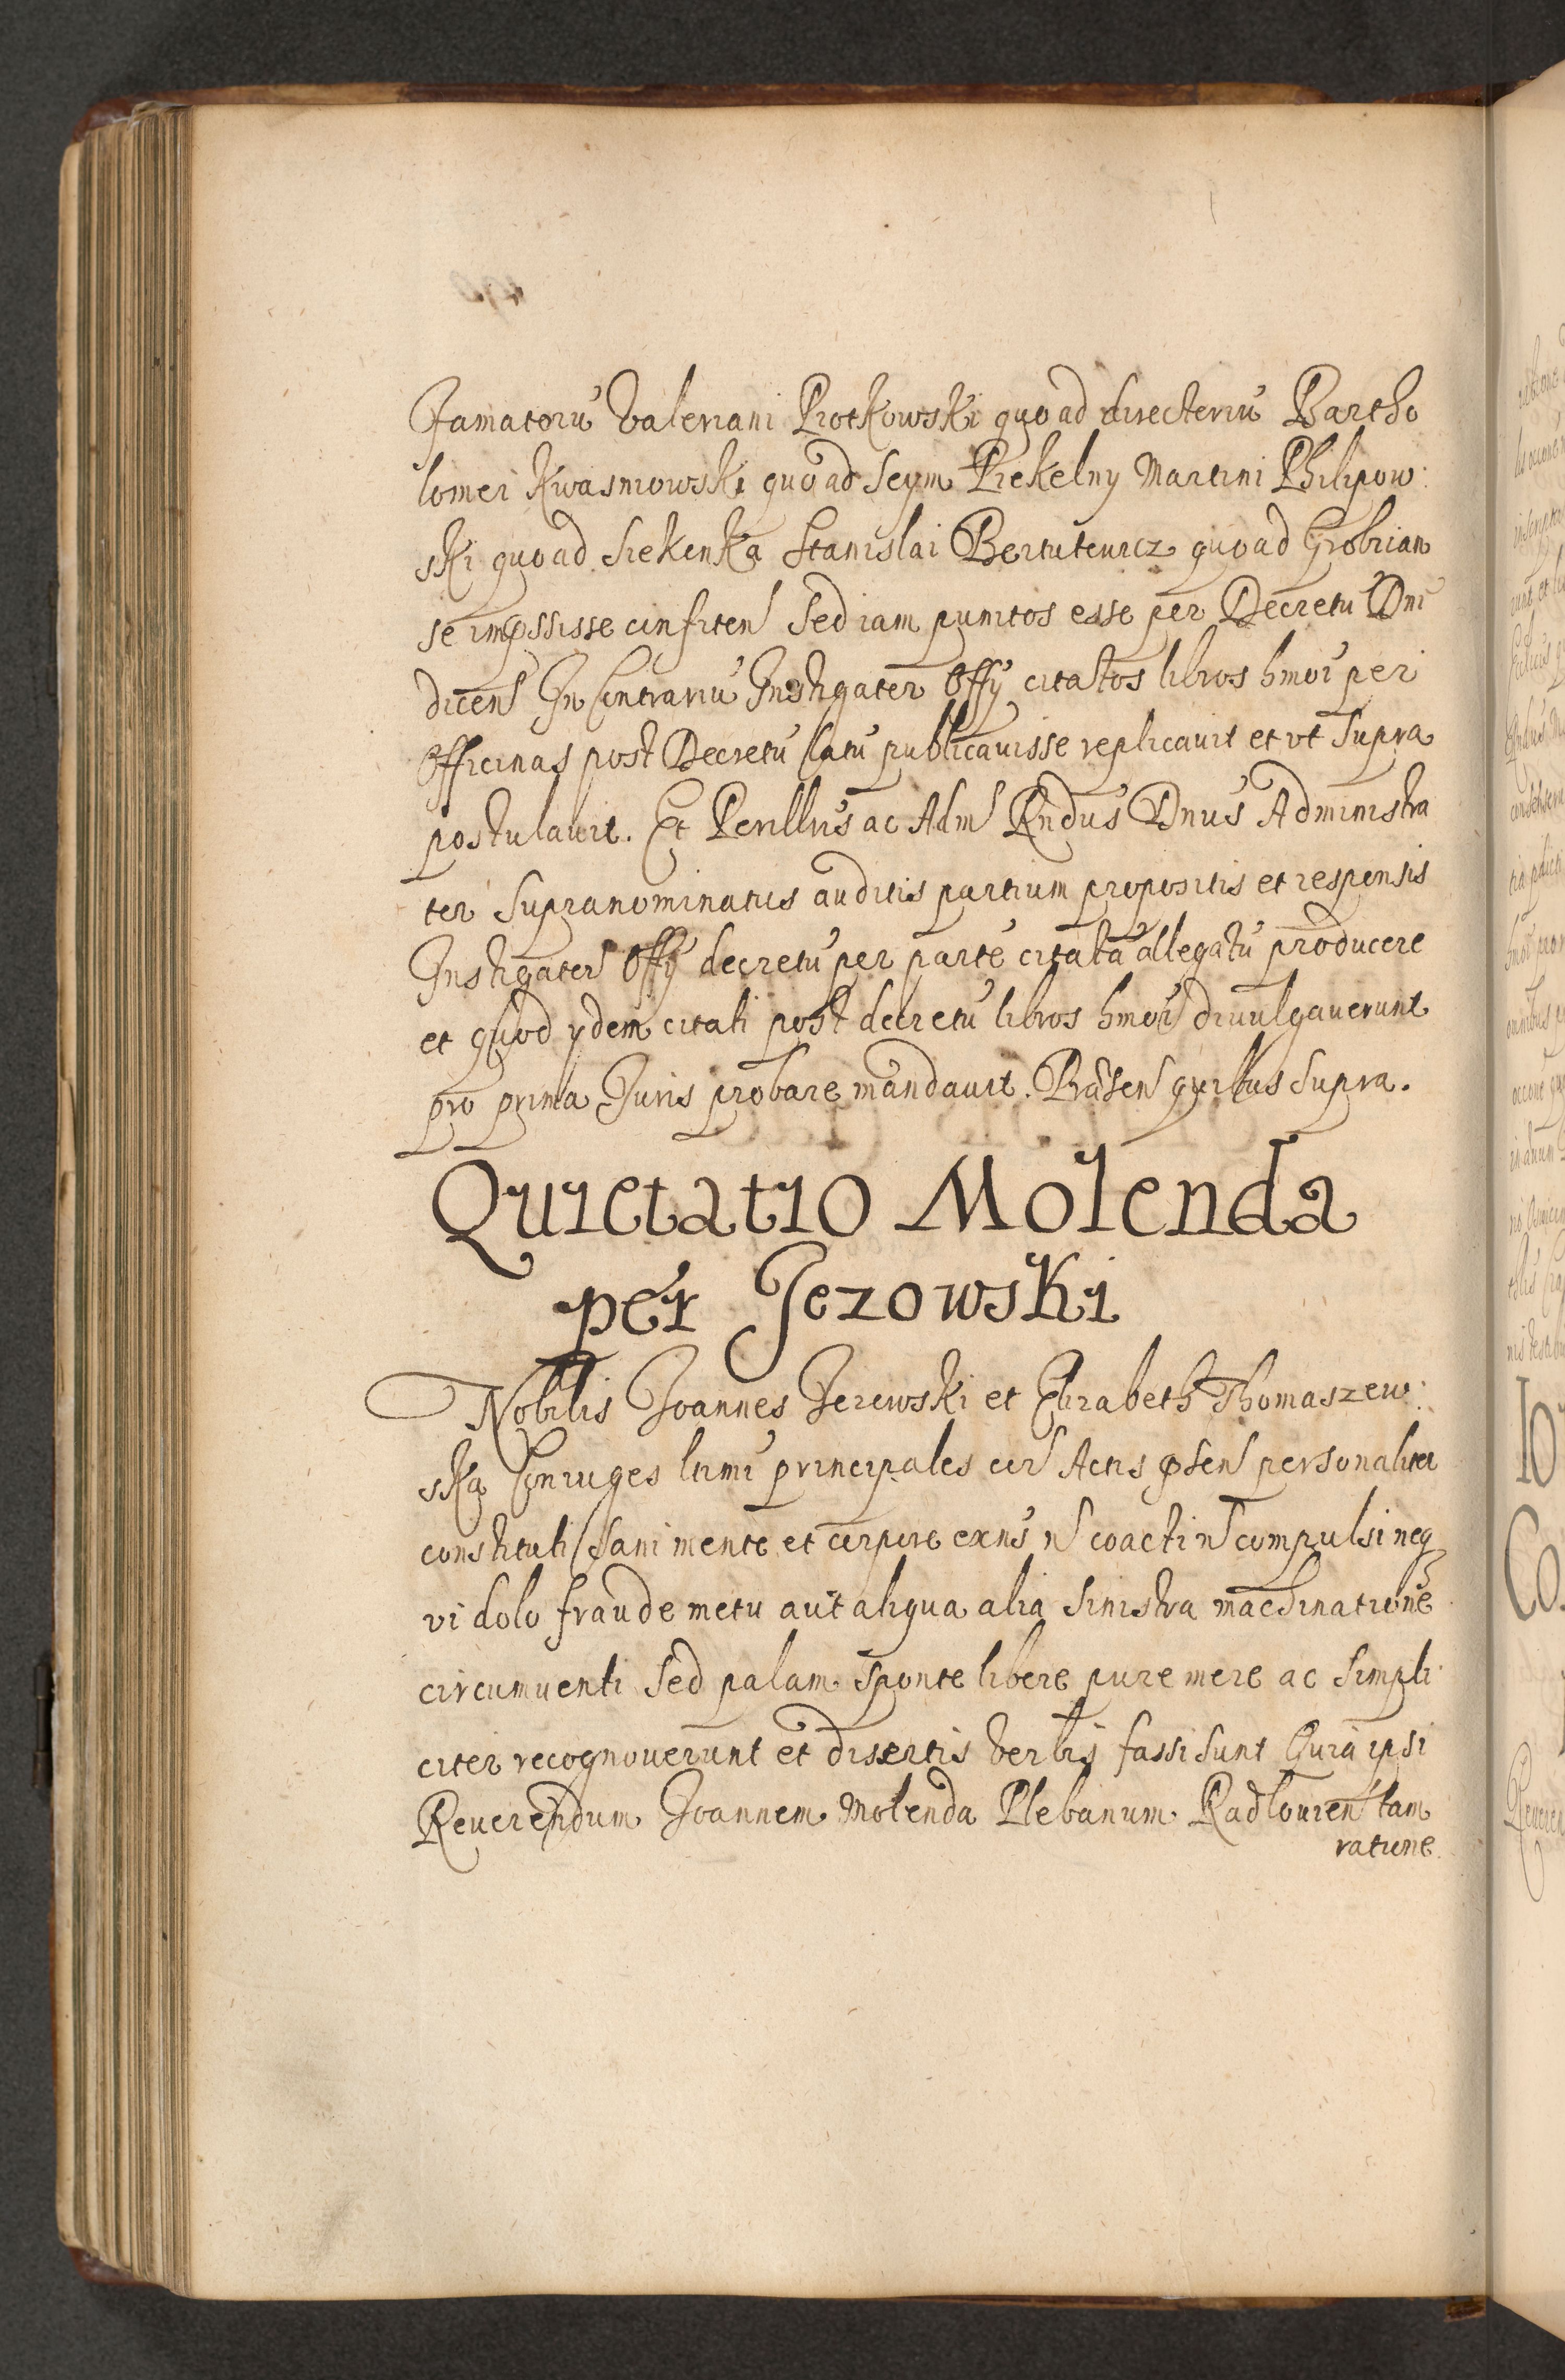 Famatoru Valeriani Piotkowski quo ad directoriu Bartho
lomei Kwasniowski quo ad Seym Piekelny Martini Philipow:
ski quo ad Siekenka Stanislai Bertutewicz quo ad Grobian
se impssisse confiten Sed iam punitos esse per Decretu Dni
dicen In Contrariu Instigator Offÿ citatos libros hmoi per
Officinas post Decretu latu publicauisse replicauit et vt Supra
postulauit. Et Perillris ac Adm Rndus Dnus Administra
tor Supranominatus auditis partium propositis et responsis
Instigator Offÿ decretu per parte citata allegatu producere
et quod ydem citati post decretu libros hmoi diuulgauerunt
pro prima Juris probare mandauit. Prasen quibus Supra.
Quietatio Molenda
per Jezowski
Nobilis Joannes Jezowski et Elizabeth Thomaszew:
ska Coniuges ltimi principales cor Actis psen personaliter
constituti Sani mente et corpore exns n coacti n compulsi neq
vi dolo fraude metu aut aliqua alia Sinistra machinatione
circumuenti Sed palam sponte libere pure mere ac Simpli
citer recognouerunt et disertis verbis fassi sunt Quia ipsi
Reuerendum Joannem Molenda Plebanum Radlouien tam
ratione